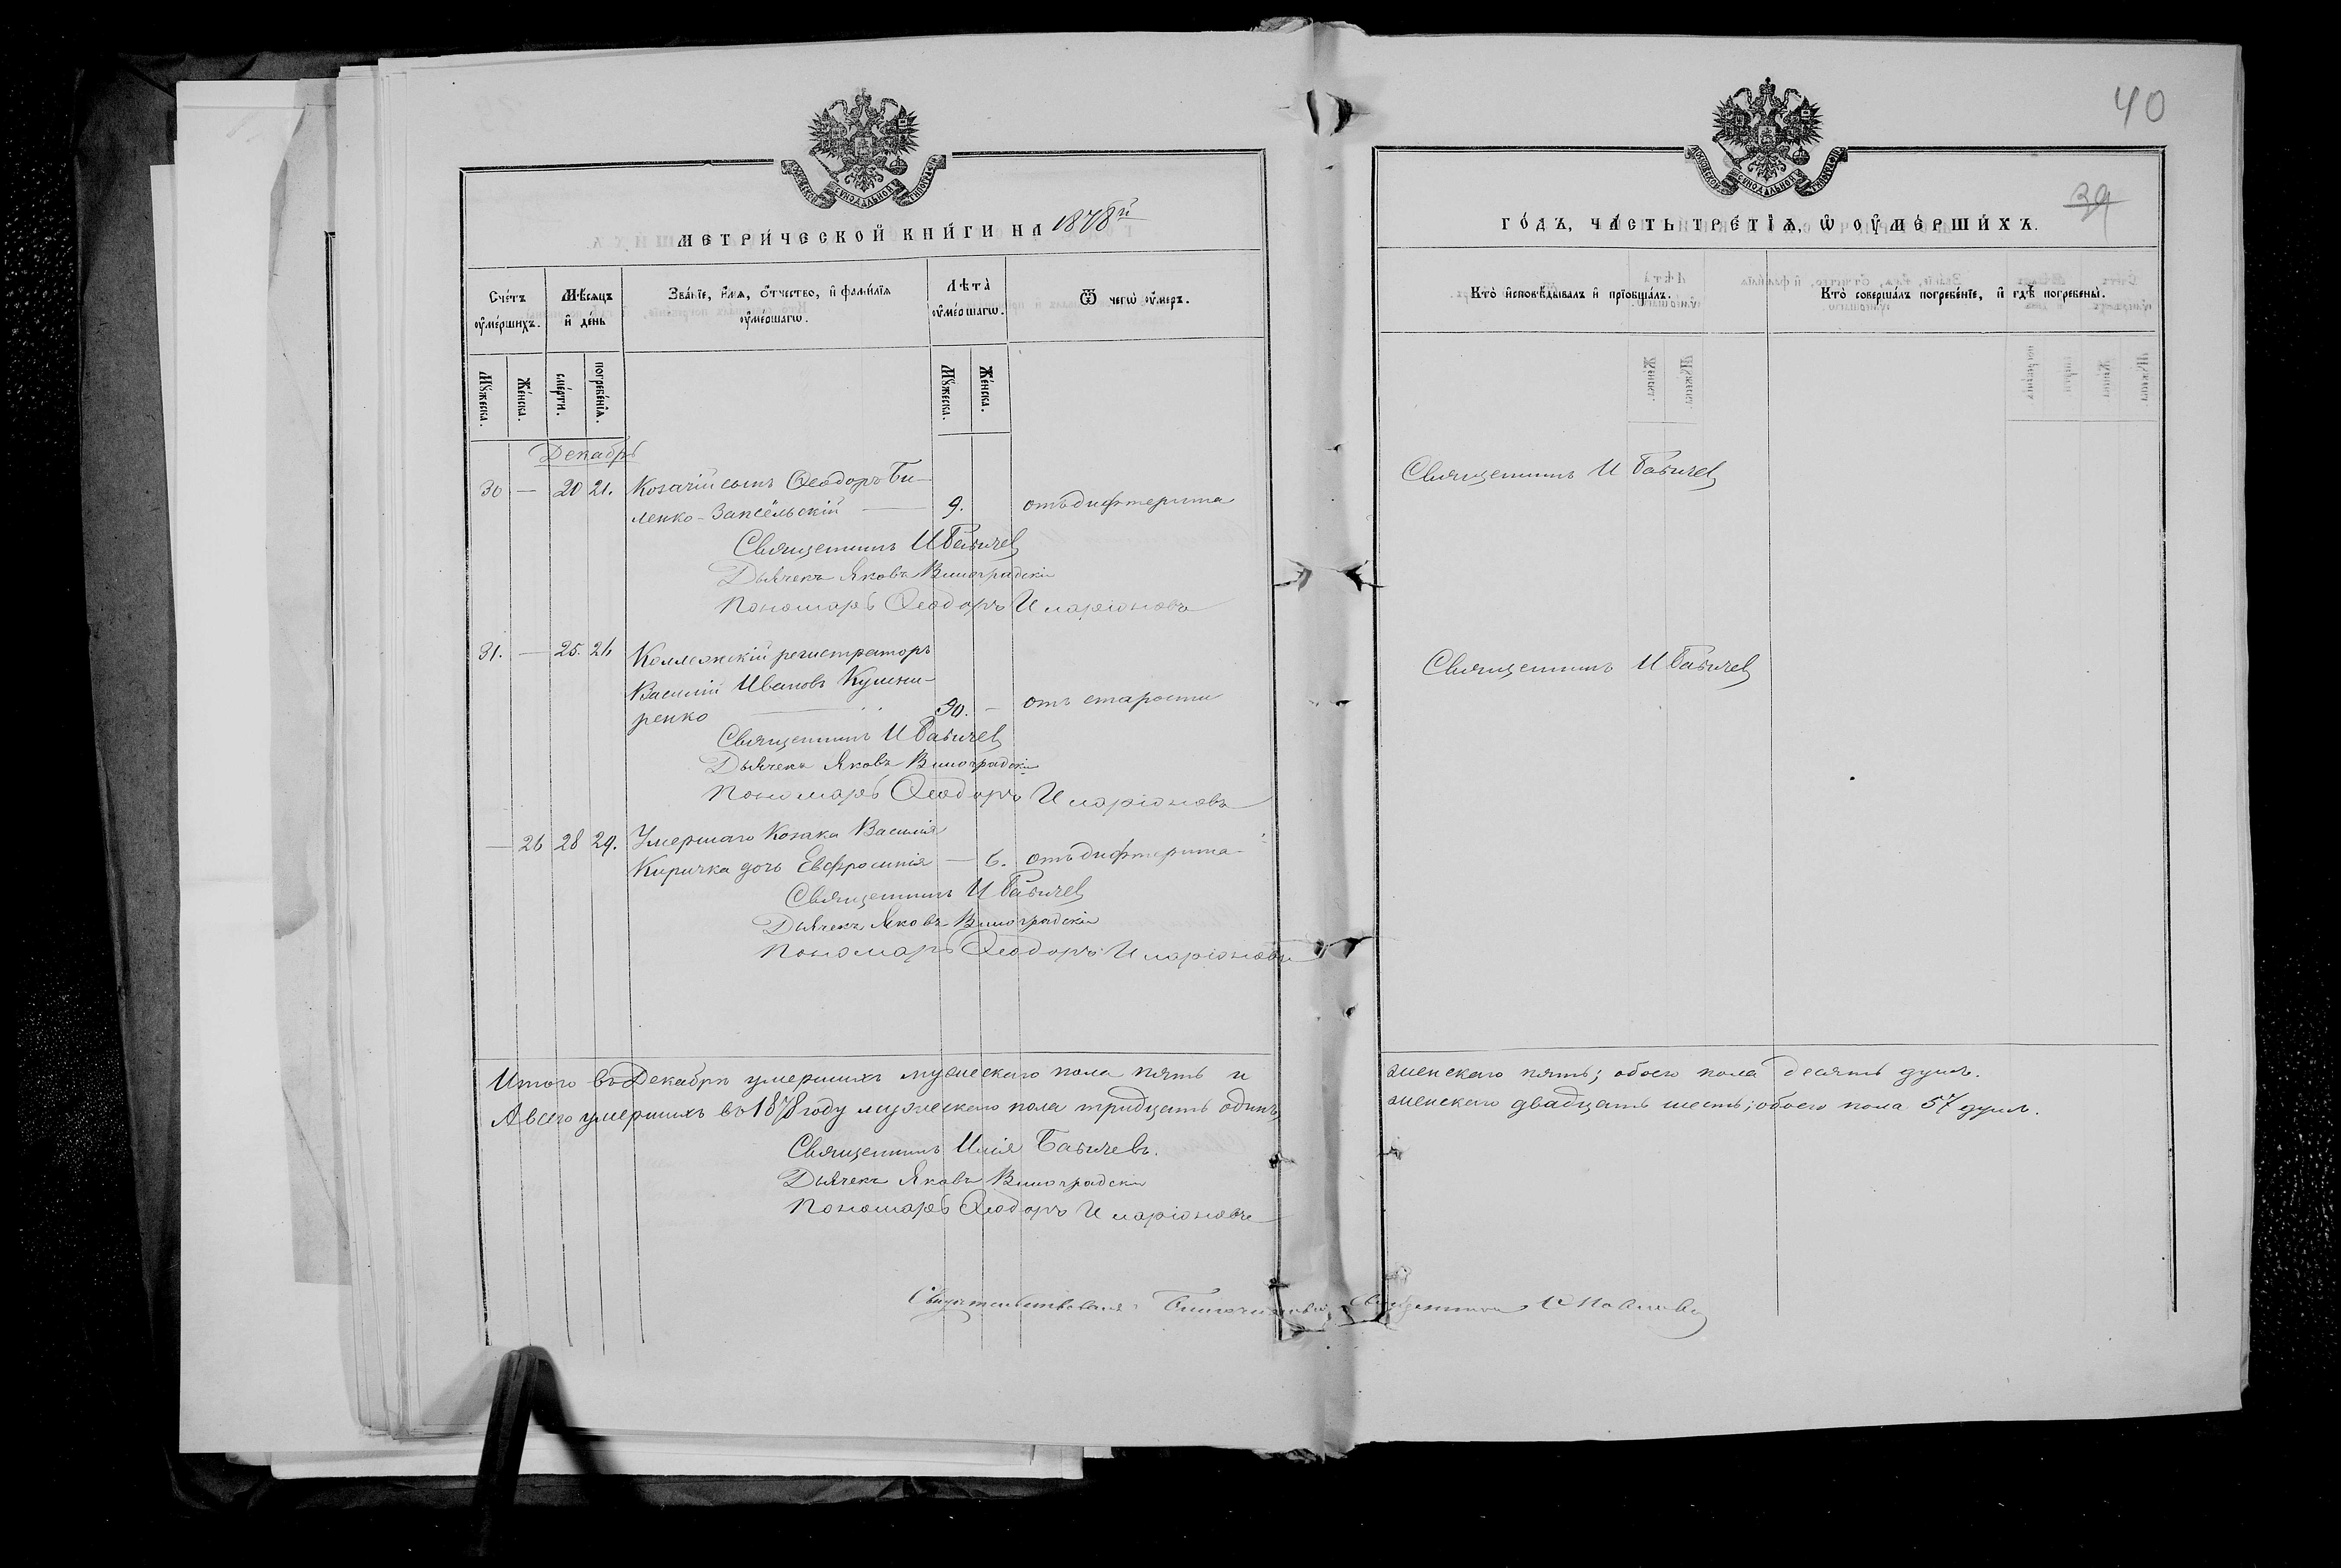 40
39
МЕТРИЧЕСКОЙ КНИГИ НА 1878й
ГОДЪ, ЧАСТЬ ТРЕТІЯ, Ѿ ОУМЕРШИХЪ.
Счетъ оумершихъ.
Мѣсяцъ и день
Званіе, имя, отчество, и фамилія оумершагѡ.
Лѣта оумершагѡ.
Ѿ чегѡ оумеръ.
Кто исповѣдывалъ и пріобщалъ.
Кто совершалъ погребеніе, и гдѣ погребены.
Мужеска.
Женска.
смерти.
погребенія.
Мужеска.
Женска.
Декабрь
30 — 20 21. Козачій сынъ Ѳеодоръ Би-
ленко-Запсёльскій — 9. отъ дифтерита
Священникъ И Бабичев
Священникъ И Бабичев
Дьячекъ Яковъ Виноградскій
Пономарь Ѳеодоръ Иларіоновъ
31. — 25. 26 Коллежскій регистраторъ
Василій Ивановъ Кушни-
ренко — 90. — отъ старости
Священникъ И Бабичев
Священникъ И Бабичев
Дьячекъ Яковъ Виноградскій
Пономарь Ѳеодоръ Иларіоновъ
— 26 28 29. Умершаго Козака Василія
Киричка дочь Евфросинія — 6. отъ дифтерита
Священникъ И Бабичев
Дьячекъ Яковъ Виноградскій
Пономарь Ѳеодоръ Иларіоновъ
Итого въ Декабрѣ умершихъ мужескаго пола пять и женскаго пять; обоего пола десять душъ.
А всего умершихъ въ 1878 году мужескаго пола тридцать одинъ, женскаго двадцать шесть; обоего пола 57 душъ.
Священникъ Илія Бабичевъ.
Дьячекъ Яковъ Виноградскій
Пономарь Ѳеодоръ Иларіоновъ
Свидетельствовалъ: Благочинный Священникъ